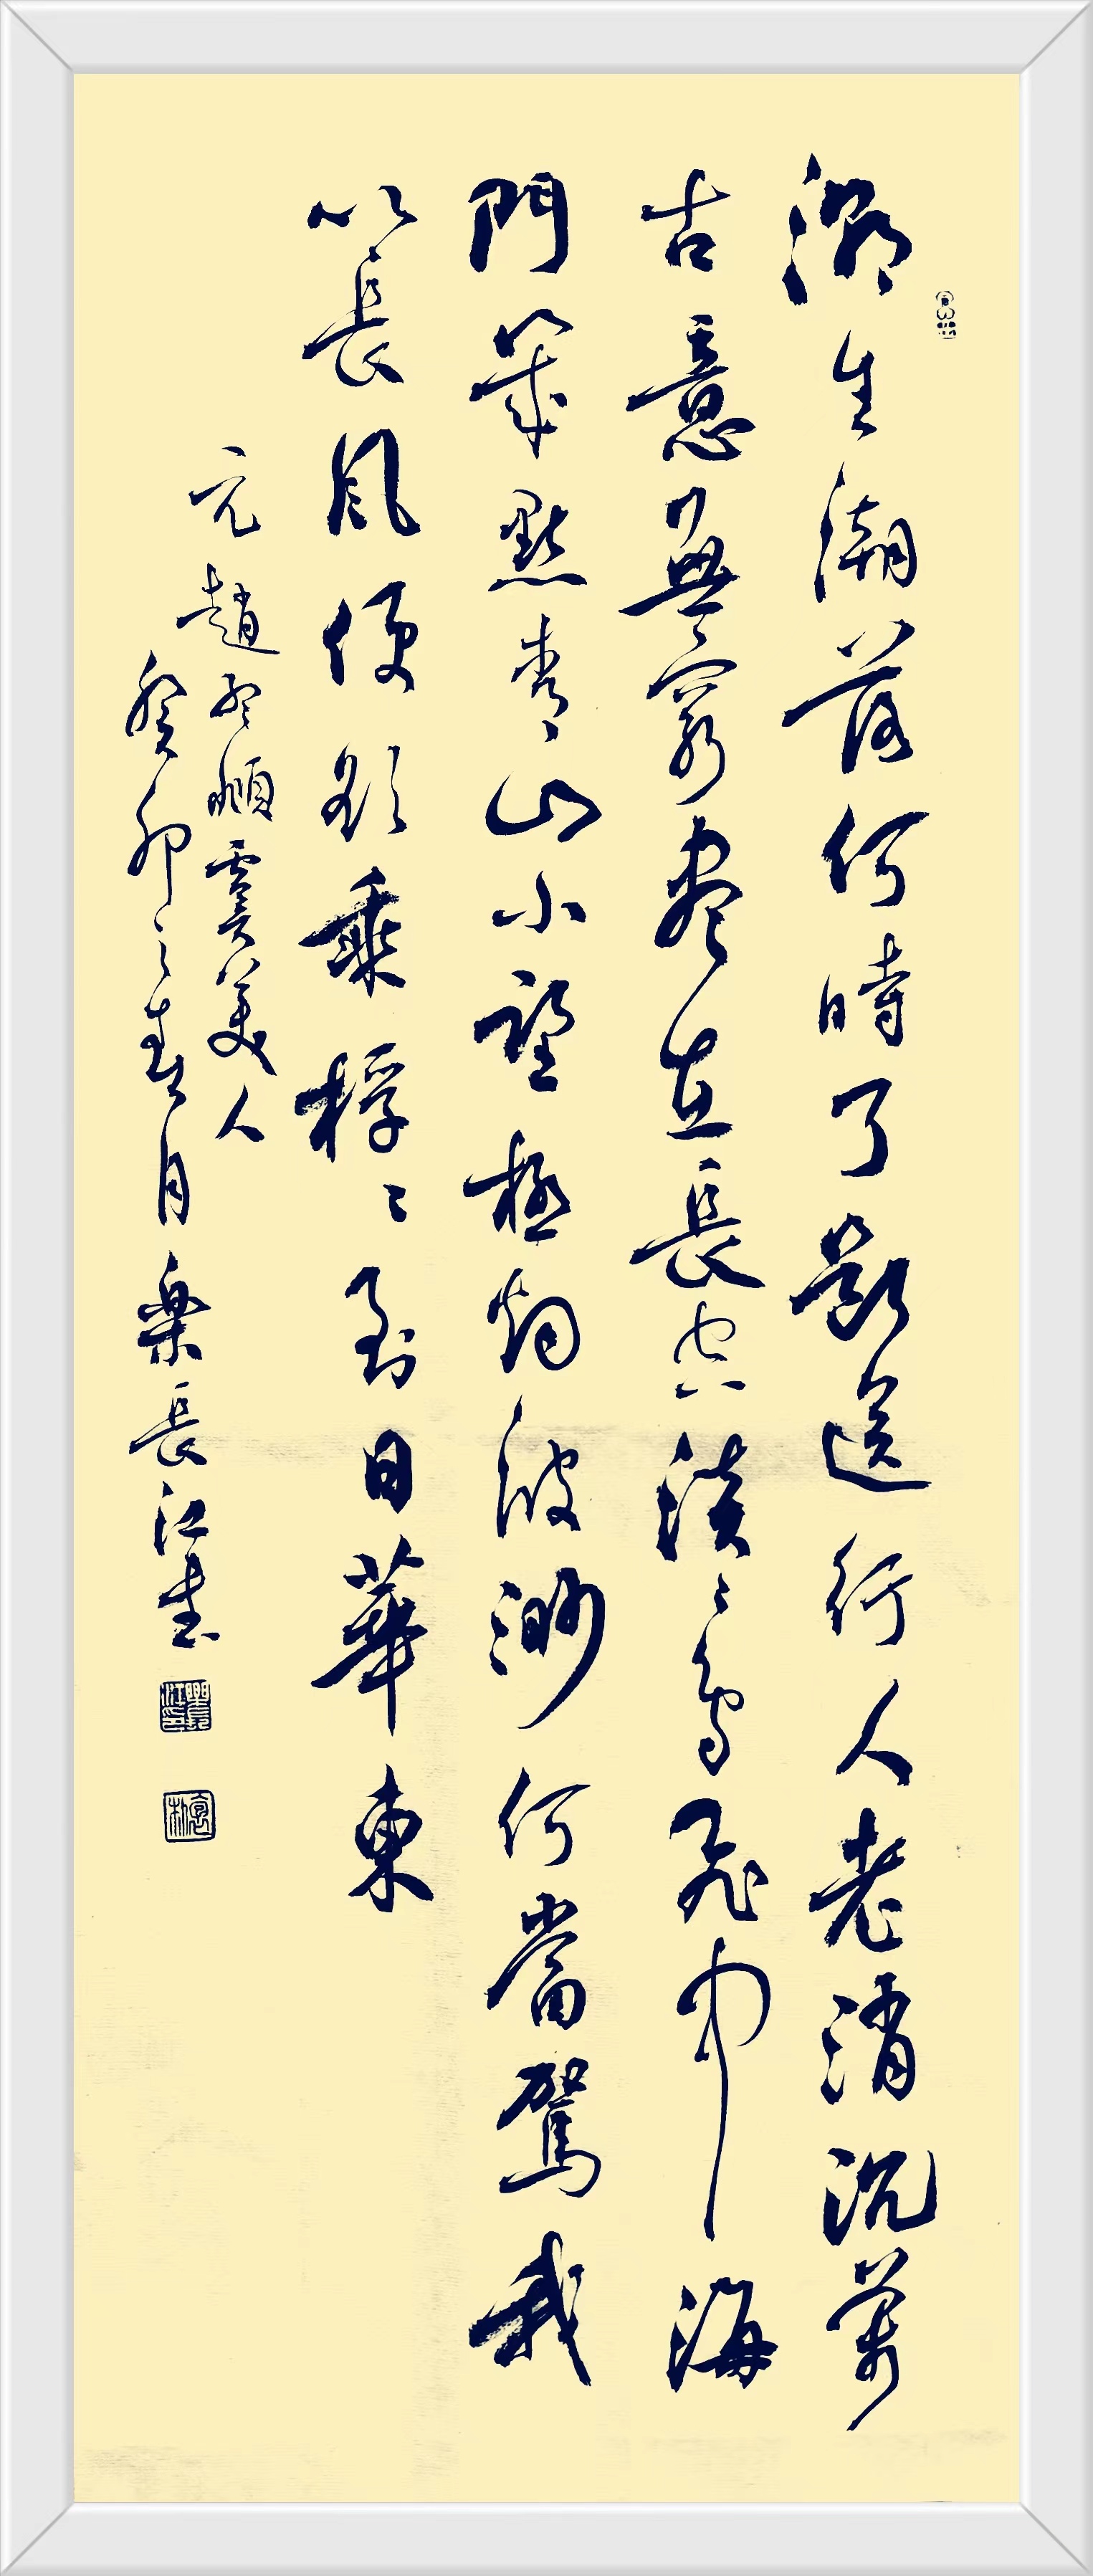 潮生潮落何時了斷送行人老消沉萬
古意無窮盡在長空淡〻鳥飛中海
門幾點青山小望極烟波渺何當駕我
以長風便欲乘桴〻到日華東
元趙孟頫虞美人
癸卯之春月樂長江書